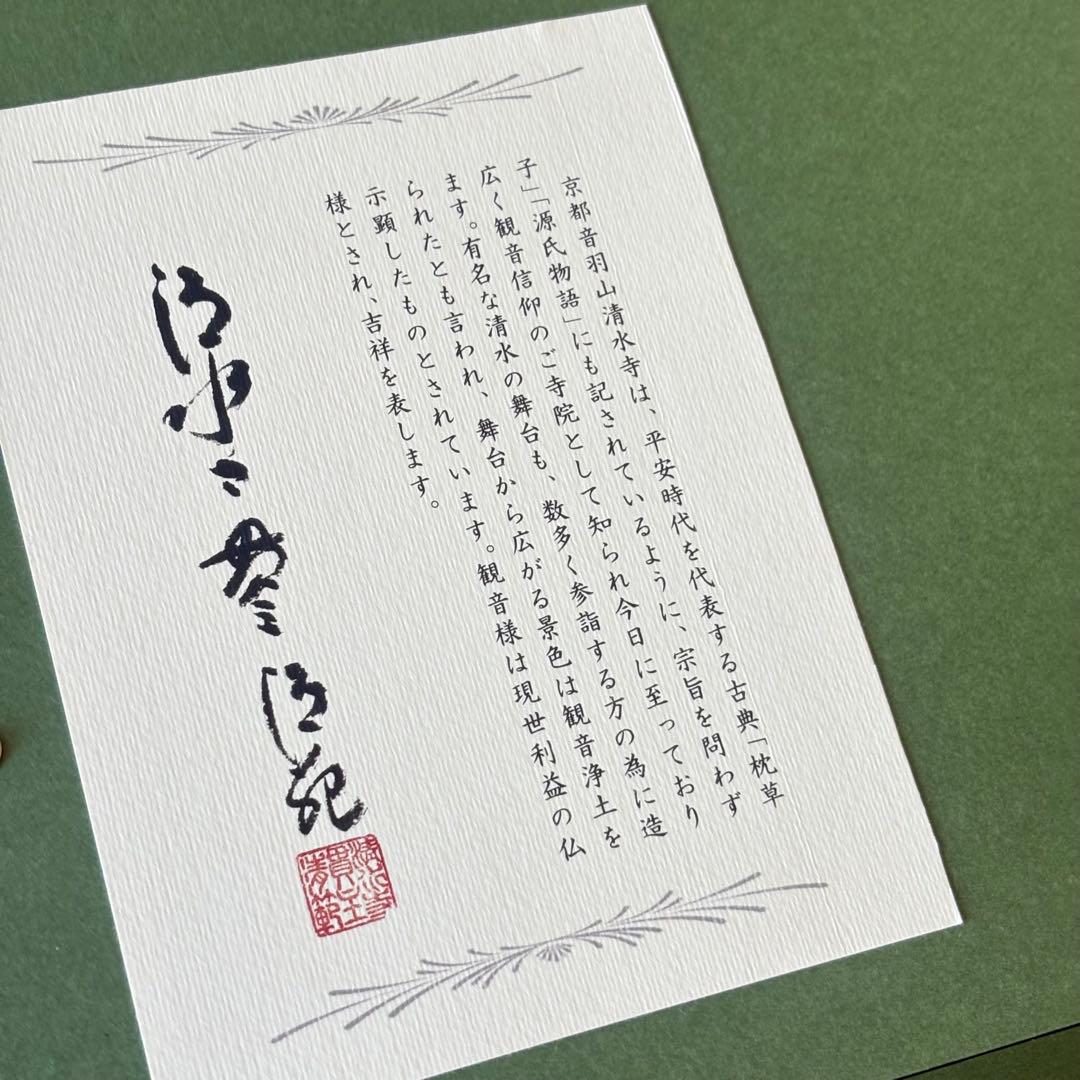 京都音羽山清水寺は、平安時代を代表する古典「枕草
子」「源氏物語」にも記されているように、宗旨を問わず
広く観音信仰のご寺院として知られ今日に至っており
ます。有名な清水の舞台も、数多く参詣する方の為に造
られたとも言われ、舞台から広がる景色は観音浄土を
示顕したものとされています。観音様は現世利益の仏
様とされ、吉祥を表します。
清水寺貫主清範
清水寺
貫主
清範